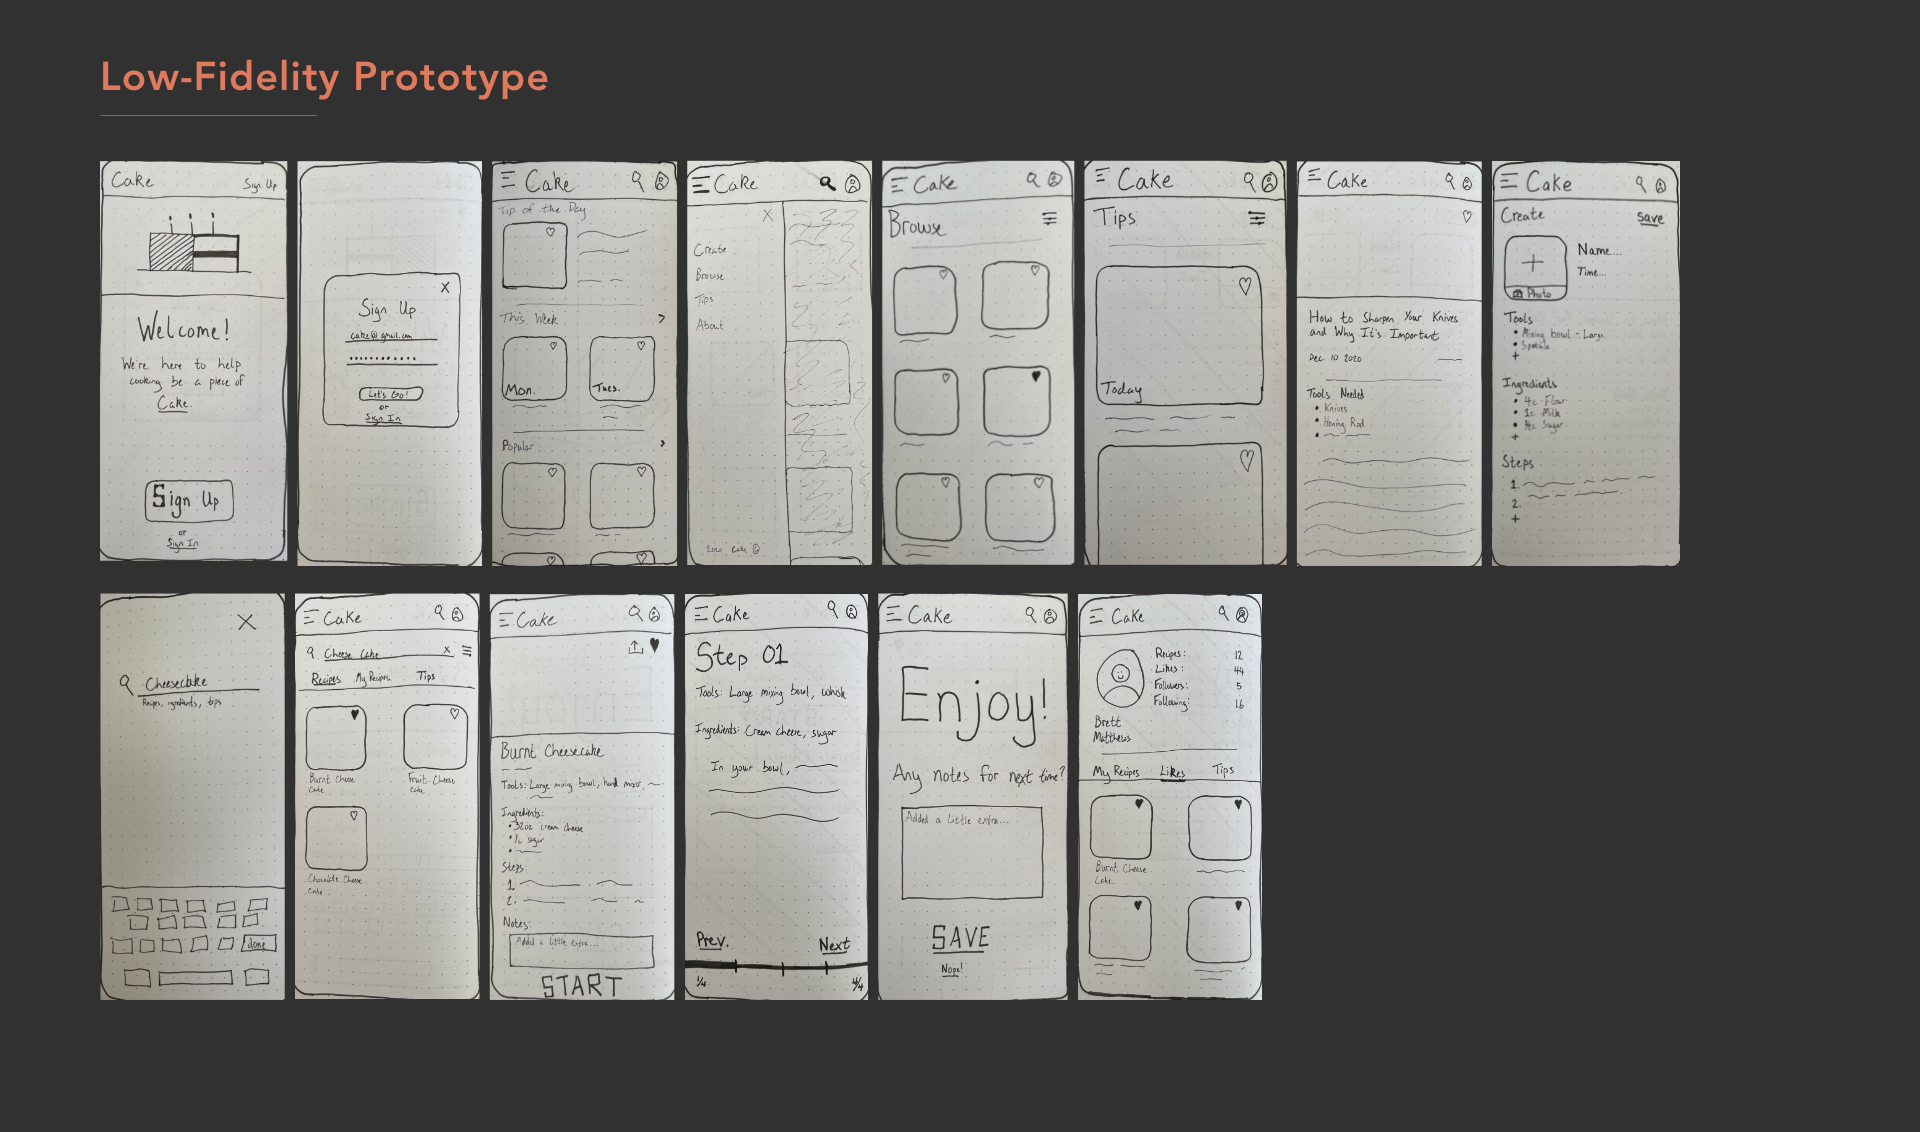 Low-Fidelity Prototype
Cake
Sign Up
Welcome!
We're here to help
cooking be a piece of
Cake.
Sign Up
or
Sign In
X
Sign Up
cake@gmail.com
Let's Go!
or
Sign In
Cake
Tip of the Day
This Week
>
Mon.
Tues.
Popular
>
Cake
X
Create
Browse
Tips
About
2020 Cake ©
Cake
Browse
Cake
Tips
Today
Cake
How to Sharpen Your Knives
and Why It's Important
Dec 10 2020
Tools Needed
• Knives
• Honing Rod
Cake
Create
Save
+
Photo
Name...
Time...
Tools
• Mixing bowl - Large
• Spatula
+
Ingredients
• 4c Flour
• 1c Milk
Sugar
+
Steps
1.
2.
+
X
Cheesecake
Recipes, ingredients, tips
done
Cake
Cheese Cake
X
Recipes
My Recipes
Tips
Burnt Cheese
Cake
Fruit Cheese
Cake
Chocolate Cheese
Cake
Cake
Burnt Cheesecake
Tools: Large mixing bowl, hand mixer,
Ingredients:
• 32oz cream cheese
• 1c sugar
Steps
1.
2.
Notes:
Added a little extra...
START
Cake
Step 01
Tools: Large mixing bowl, whisk
Ingredients: Cream cheese, sugar
In your bowl,
Prev.
Next
1/4
4/4
Cake
Enjoy!
Any notes for next time?
Added a little extra...
SAVE
Nope!
Cake
Recipes: 12
Likes: 44
Followers: 5
Following: 16
Brett
Matthews
My Recipes
Likes
Tips
Burnt Cheese
Cake